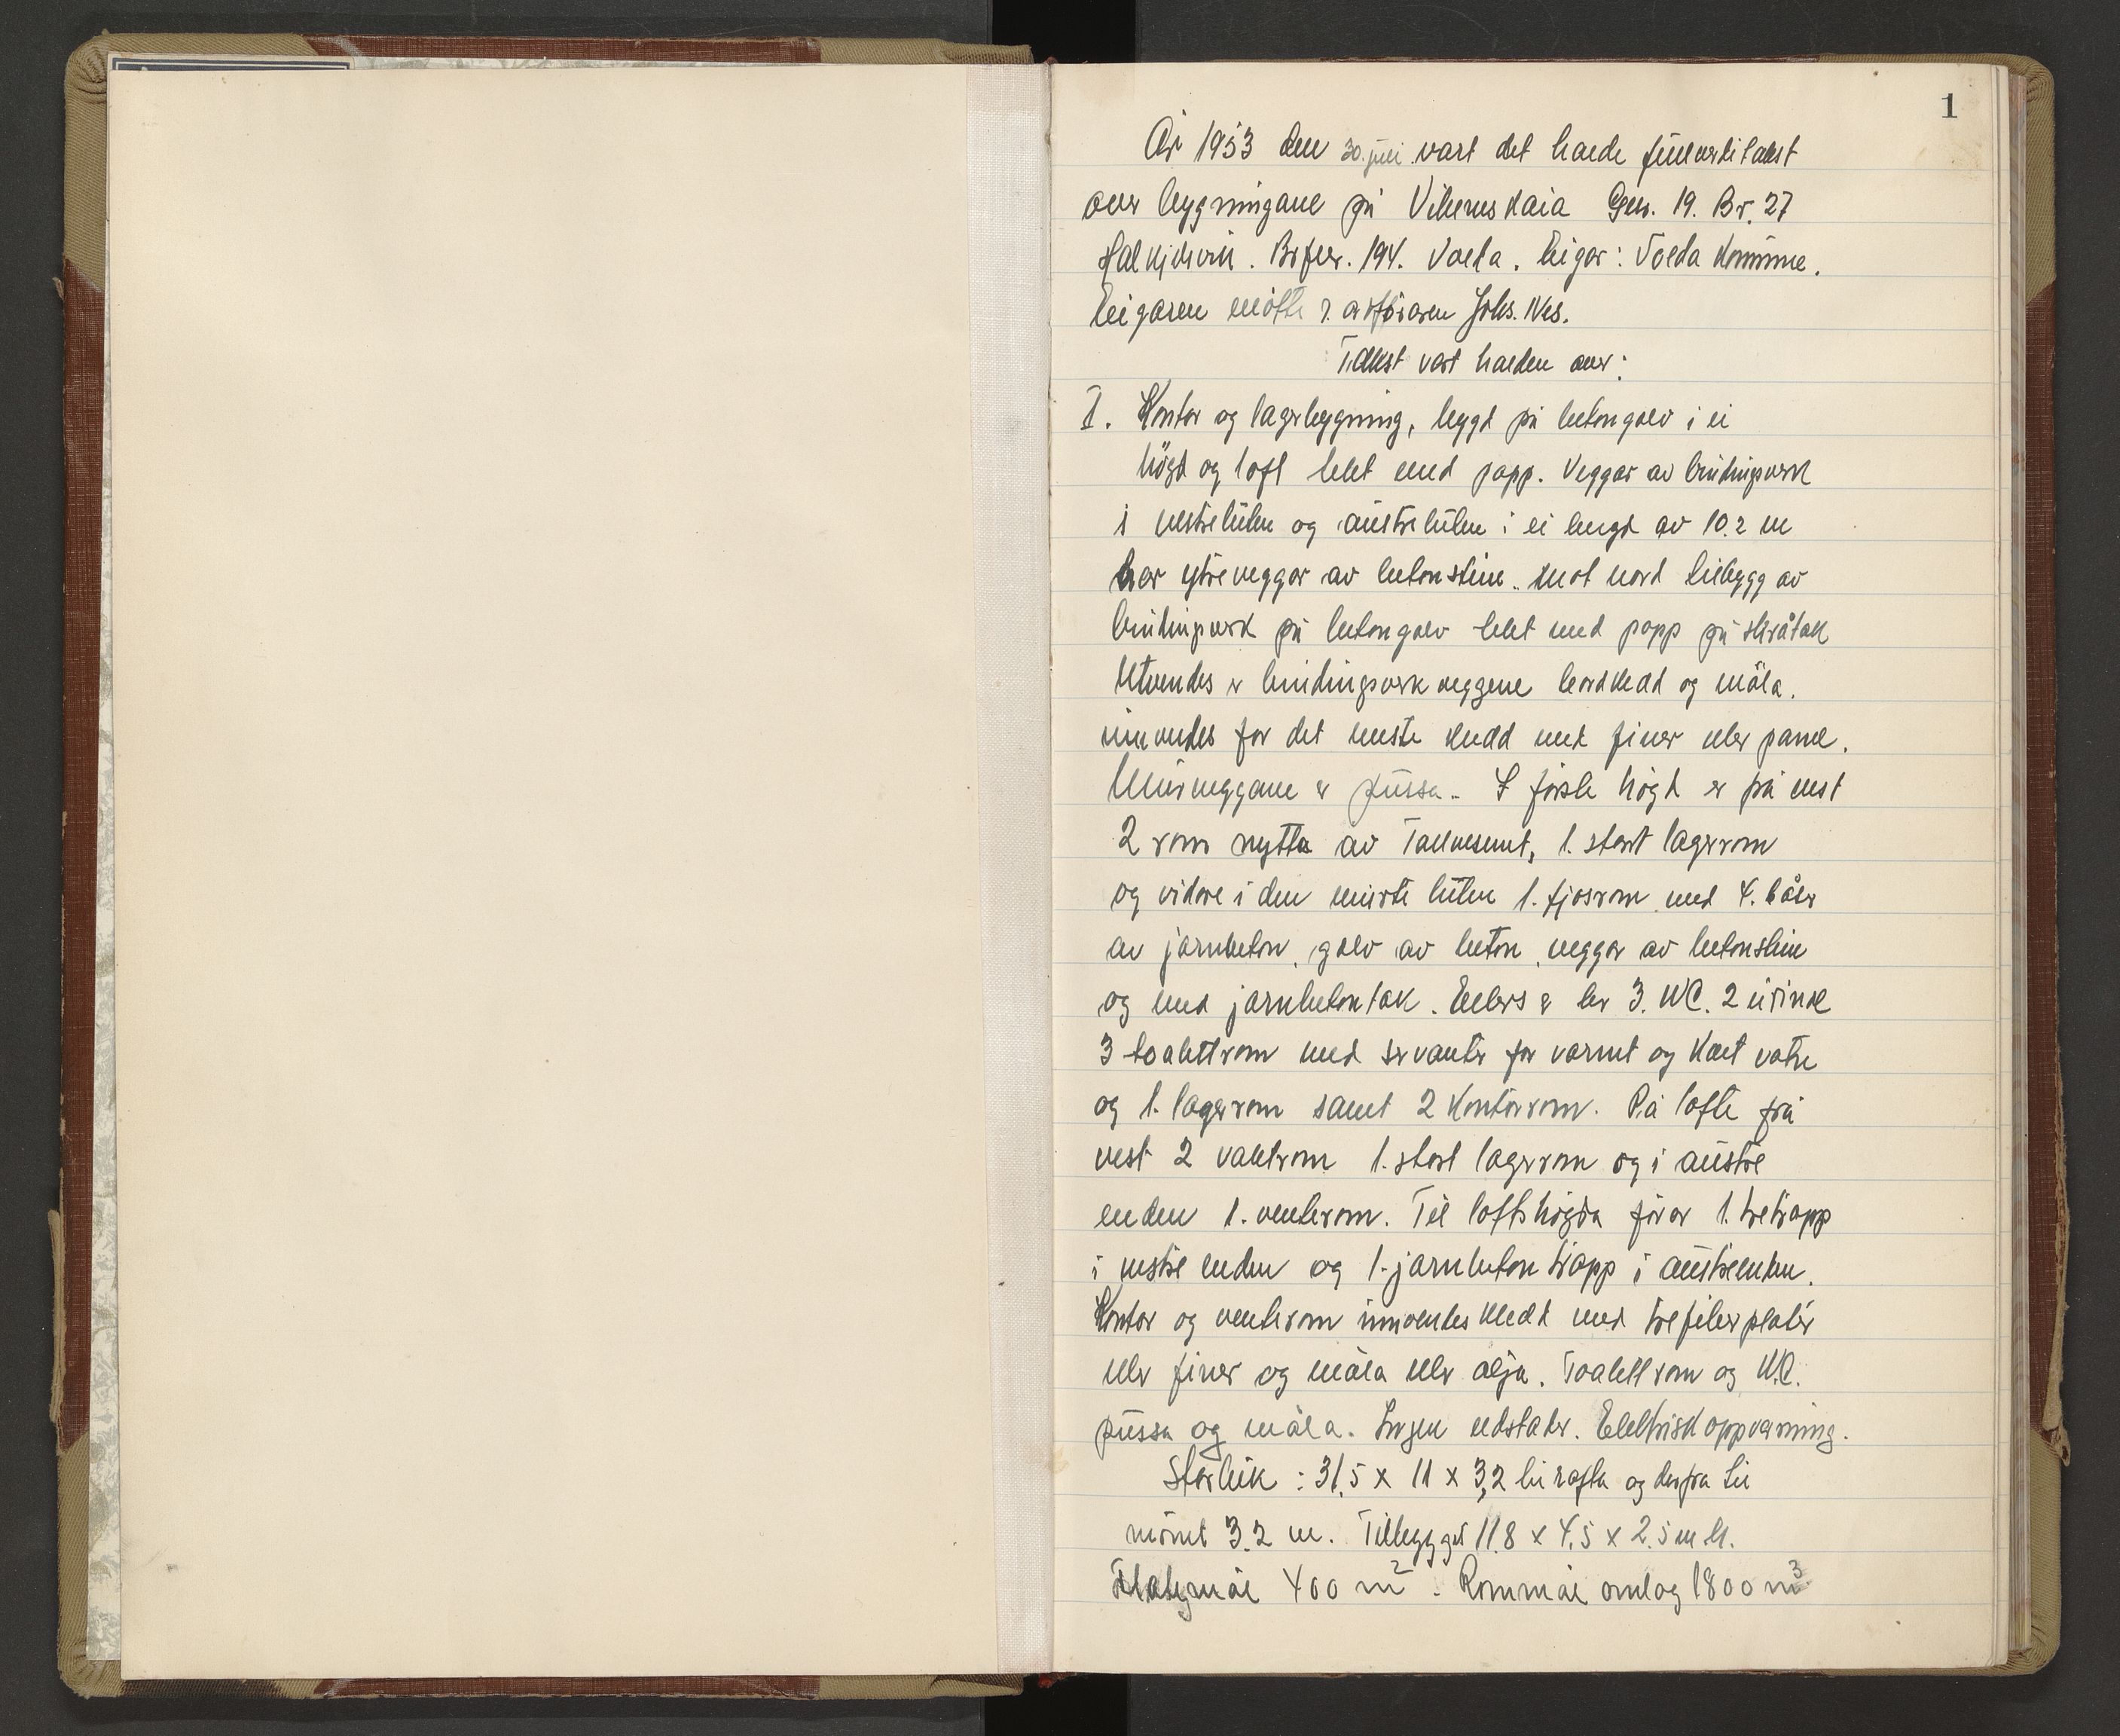 1
År 1953 den 30. juli vart det halde fullverditakst
over bygningane på Vikeneskaia Gnr. 19. Br. 27
Folkestadvik. Brfnr. 194. Volda. Eigar: Volda Kommune.
Eigaren møtte v. ordføraren Johs. Nes.
Takst vart halden over:
I. Kontor og lagerbygning, bygd på betongolv i ei
högd og loft tekt med papp. Veggar av bindingsverk
i vestre luten og austre luten i ei lengd av 10.2 m
har ytreveggar av betonstein. Mot nord tilbygg av
bindingsverk på betongolv tekt med papp på skråtak
Utvendes er bindingsverkveggene bordkledd og måla.
innvendes for det meste kledd med finer eller panel.
Murveggane er pussa. I förste högd er frå vest
2 rom nytta av 1. stort lagerrom
og vidare i den murte luten 1. fjosrom med 4. båser
av jarnbeton, golv av beton, veggar av betonstein
og med jarnbetontak. Ellers er her 3. WC. 2 urinal
3 toalettrom med servanter for varmt og kalt vatn
og 1. lagerrom samt 2 kontorrom. På lofte frå
vest 2 kvaletrom 1. stort lagerrom og i austre
enden 1. venterom. Til loftshögda förer 1. tretrapp
i vestre enden og 1. jarnbetontrapp i austreenden.
Kontor og venterom innvendes kledd med trefiberplater
eller finer og måla eller olja. Toalettrom og W.C.
pussa og måla. Ingen eldstader. Elektrisk oppvarming.
Storleik: 31,5 x 11 x 3,2 til rafta og derfra til
mönet 3.2 m. Tilbygget 11.8 x 4.5 x 2.5 m h.
Flatemål 400 m² . Rommål omlag 1800 m³